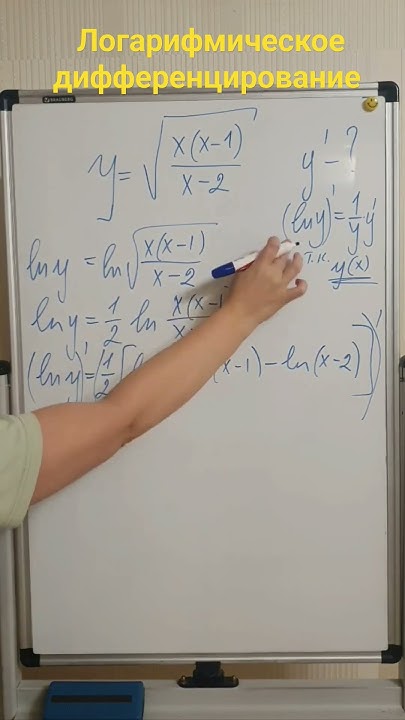 Логарифмическое
дифференцирование
y = √(x(x-1)/(x-2))   y' - ?
(ln y)' = 1/y y'
т.к. y(x)
ln y = ln √(x(x-1)/(x-2))
ln y = 1/2 ln x(x-1
(ln y)' = (1/2 [ (x-1) - ln(x-2)])'